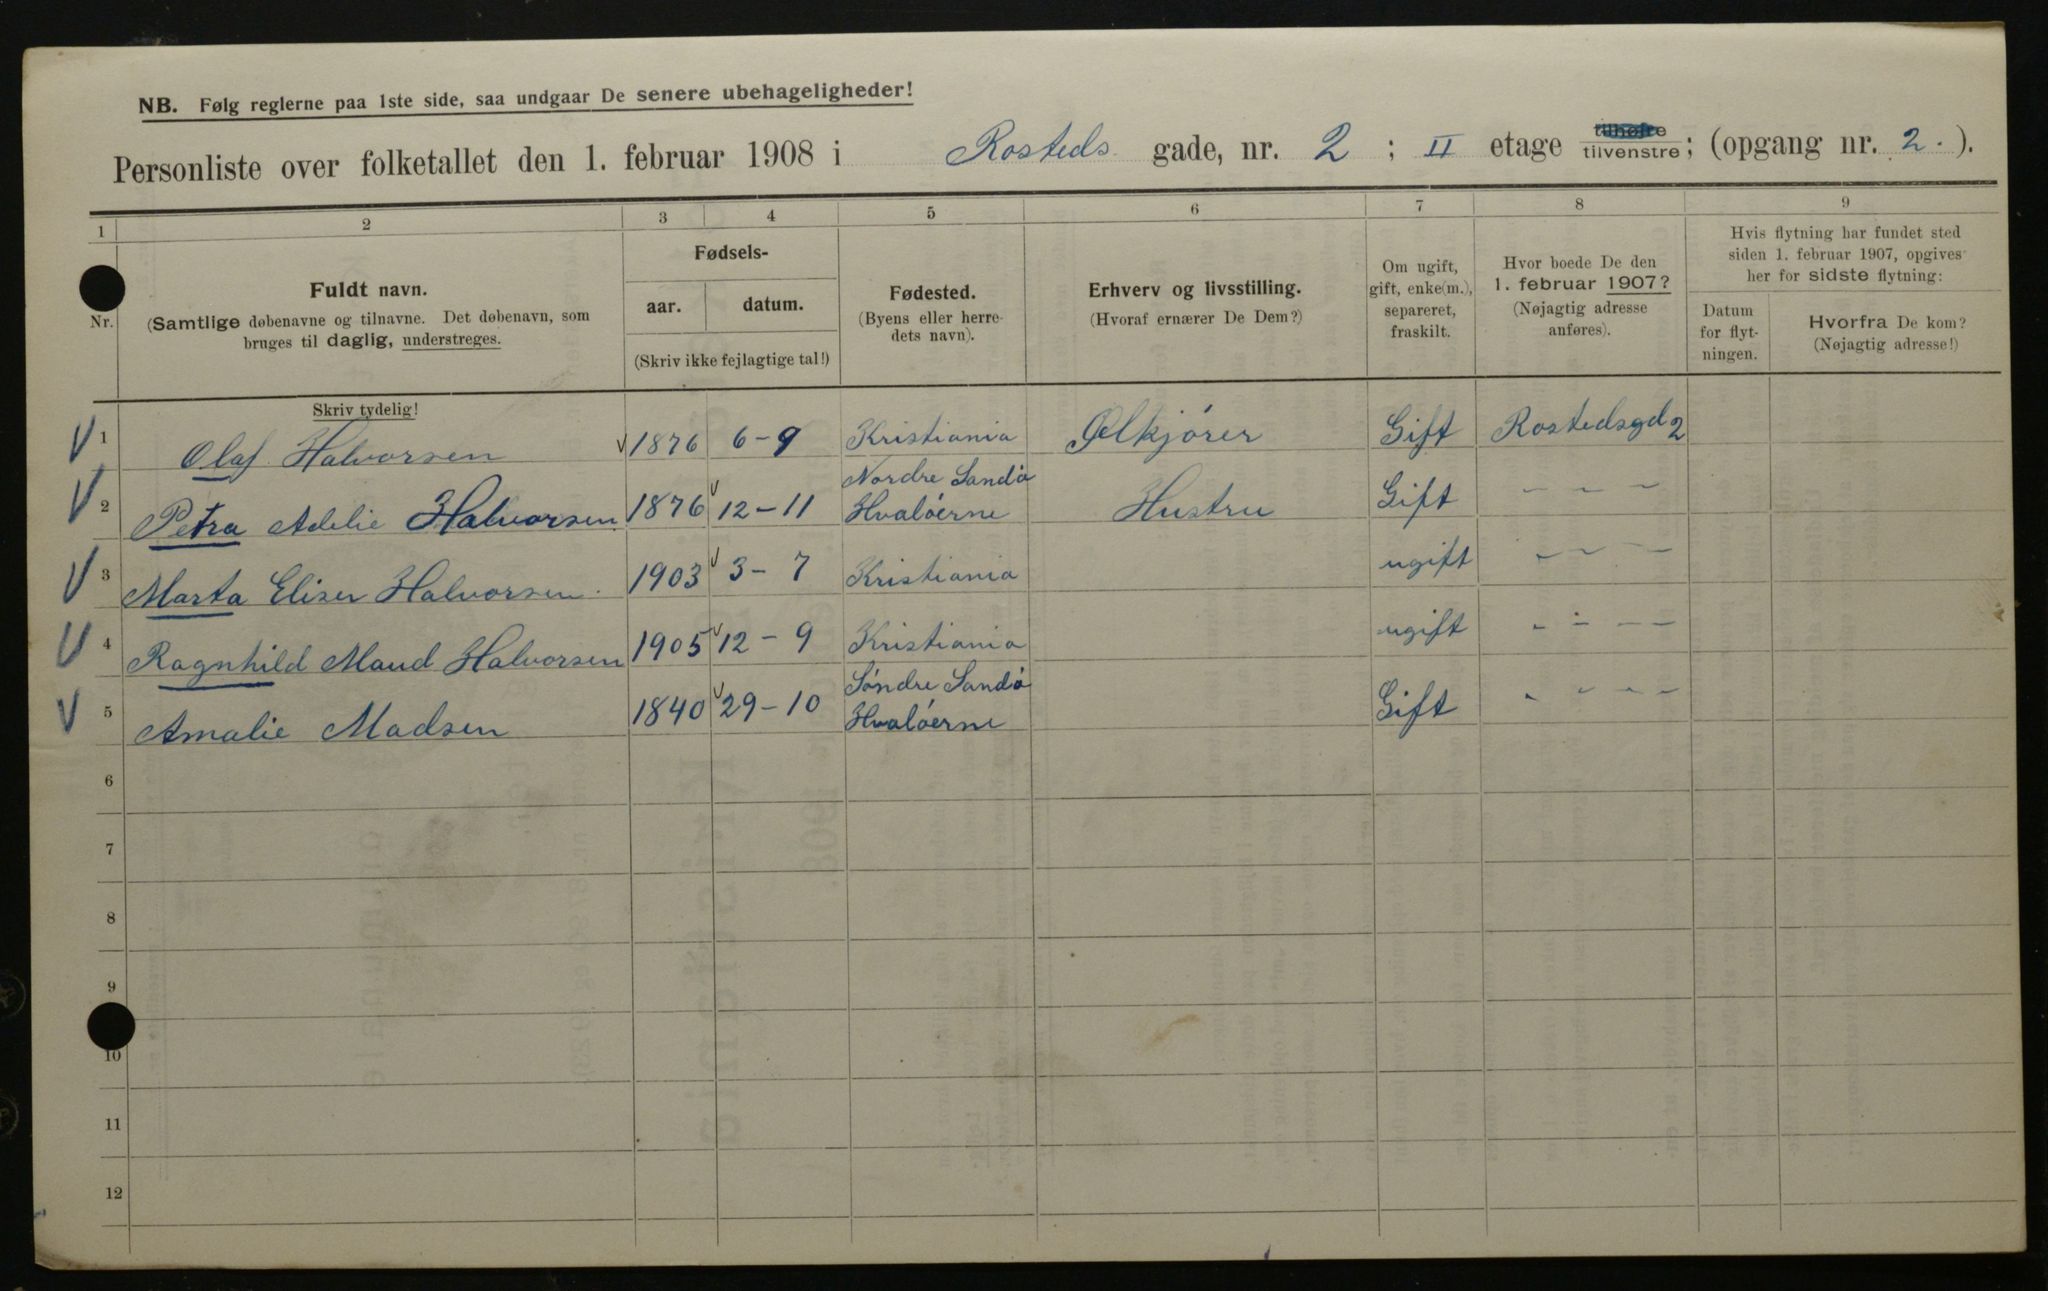 NB. Følg reglerne paa 1ste side, saa undgaar De senere ubehageligheder!
Personliste over folketallet den 1. februar 1908 i Rosteds gade, nr. 2 ; II etage tilhøire tilvenstre; (opgang nr. 2. ).
1 2 3 4 5 6 7 8 9
Nr.
Fuldt navn.
(Samtlige døbenavne og tilnavne. Det døbenavn, som
bruges til daglig, understreges.
Skriv tydelig!
Fødsels-
aar. datum.
(Skriv ikke fejlagtige tal!)
Fødested.
(Byens eller herre-
dets navn).
Erhverv og livsstilling.
(Hvoraf ernærer De Dem?)
Om ugift,
gift, enke(m.),
separeret,
fraskilt.
Hvor boede De den
1. februar 1907?
(Nøjagtig adresse
anføres).
Hvis flytning har fundet sted
siden 1. februar 1907, opgives
her for sidste flytning:
Datum
for flyt-
ningen.
Hvorfra De kom?
(Nøjagtig adresse!)
1 Olaf Halvorsen 1876 6-9 Kristiania Ølkjórer Gift Rostedsgd 2
2 Petra Adelie Halvorsen 1876 12-11 Nordre Sandó Hvalóerne Hustru Gift - - -
3 Marta Eliser Halvorsen. 1903 3-7 Kristiania ugift - - -
4 Ragnhild Maud Halvorsen 1905 12-9 Kristiania ugift - - - -
5 Amalie Madsen 1840 29-10 Sóndre Sandó Hvalóerne Gift - - - -
6
7
8
9
10
11
12